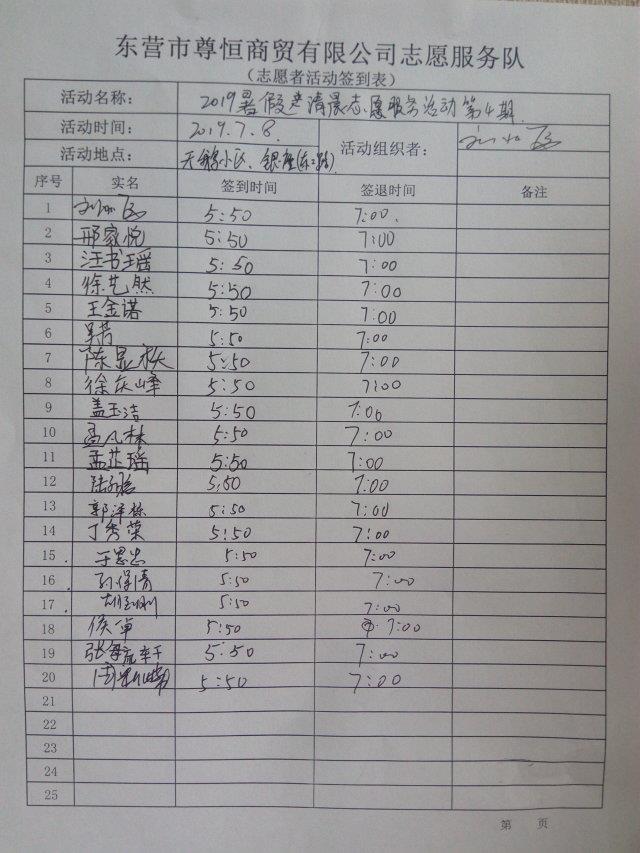 东营市尊恒商贸有限公司志愿服务队
（志愿者活动签到表）
活动名称： 2019暑假 清晨志愿服务活动第4期
活动时间： 2019.7.8. 活动组织者：
活动地点： 天鹅小区、银座(东二路)
序号 实名 签到时间 签退时间 备注
1 5:50 7:00.
2 邢家悦 5:50 7:00
3 汪书瑶 5:50 7:00
4 徐艺然 5:50 7:00
5 王金诺 5:50 7:00
6 吴芳 5:50 7:00
7 陈显 5:50 7:00
8 徐庆峰 5:50 7:00
9 盖玉洁 5:50 7:00
10 孟凡林 5:50 7:00
11 孟芷瑶 5:50 7:00
12 5:50 7:00
13 郭泽栋 5:50 7:00
14 丁秀荣 5:50 7:00
15 于恩忠 5:50 7:00
16 孙保清 5:50 7:00
17 5:50 7:00
18 侯卓 5:50 7:00
19 5:50 7:00
20 5:50 7:00
21
22
23
24
25
第 页